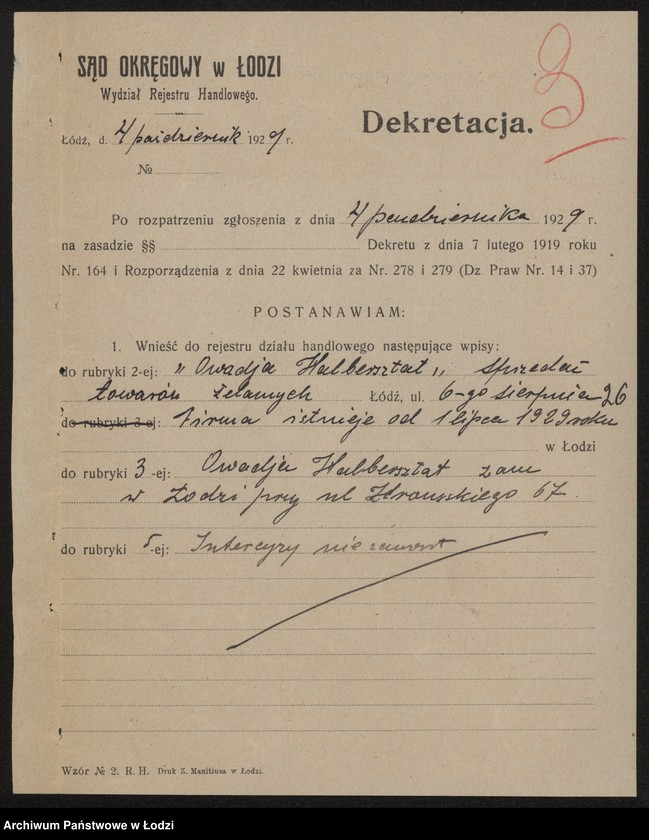 SĄD OKRĘGOWY w ŁODZI
Wydział Rejestru Handlowego.
3
Dekretacja.
Łódź, d. 4 październik 1929 r.
№
Po rozpatrzeniu zgłoszenia z dnia 4 października 1929 r.
na zasadzie §§ Dekretu z dnia 7 lutego 1919 roku
Nr. 164 i Rozporządzenia z dnia 22 kwietnia za Nr. 278 i 279 (Dz. Praw Nr. 14 i 37)
POSTANAWIAM:
1. Wnieść do rejestru działu handlowego następujące wpisy:
do rubryki 2-ej: „Owadja Halbersztat„ sprzedaż
towarów żelaznych Łódź, ul. 6-go sierpnia 26
do rubryki 3-ej: Firma istnieje od 1 lipca 1929 roku
w Łodzi
do rubryki 3-ej: Owadja Halbersztat zam
w Łodzi przy ul 67.
do rubryki 5-ej: Intercyzy nie zawarł
Wzór № 2. R. H. Druk Z. Manitiusa w Łodzi.
Archiwum Państwowe w Łodzi